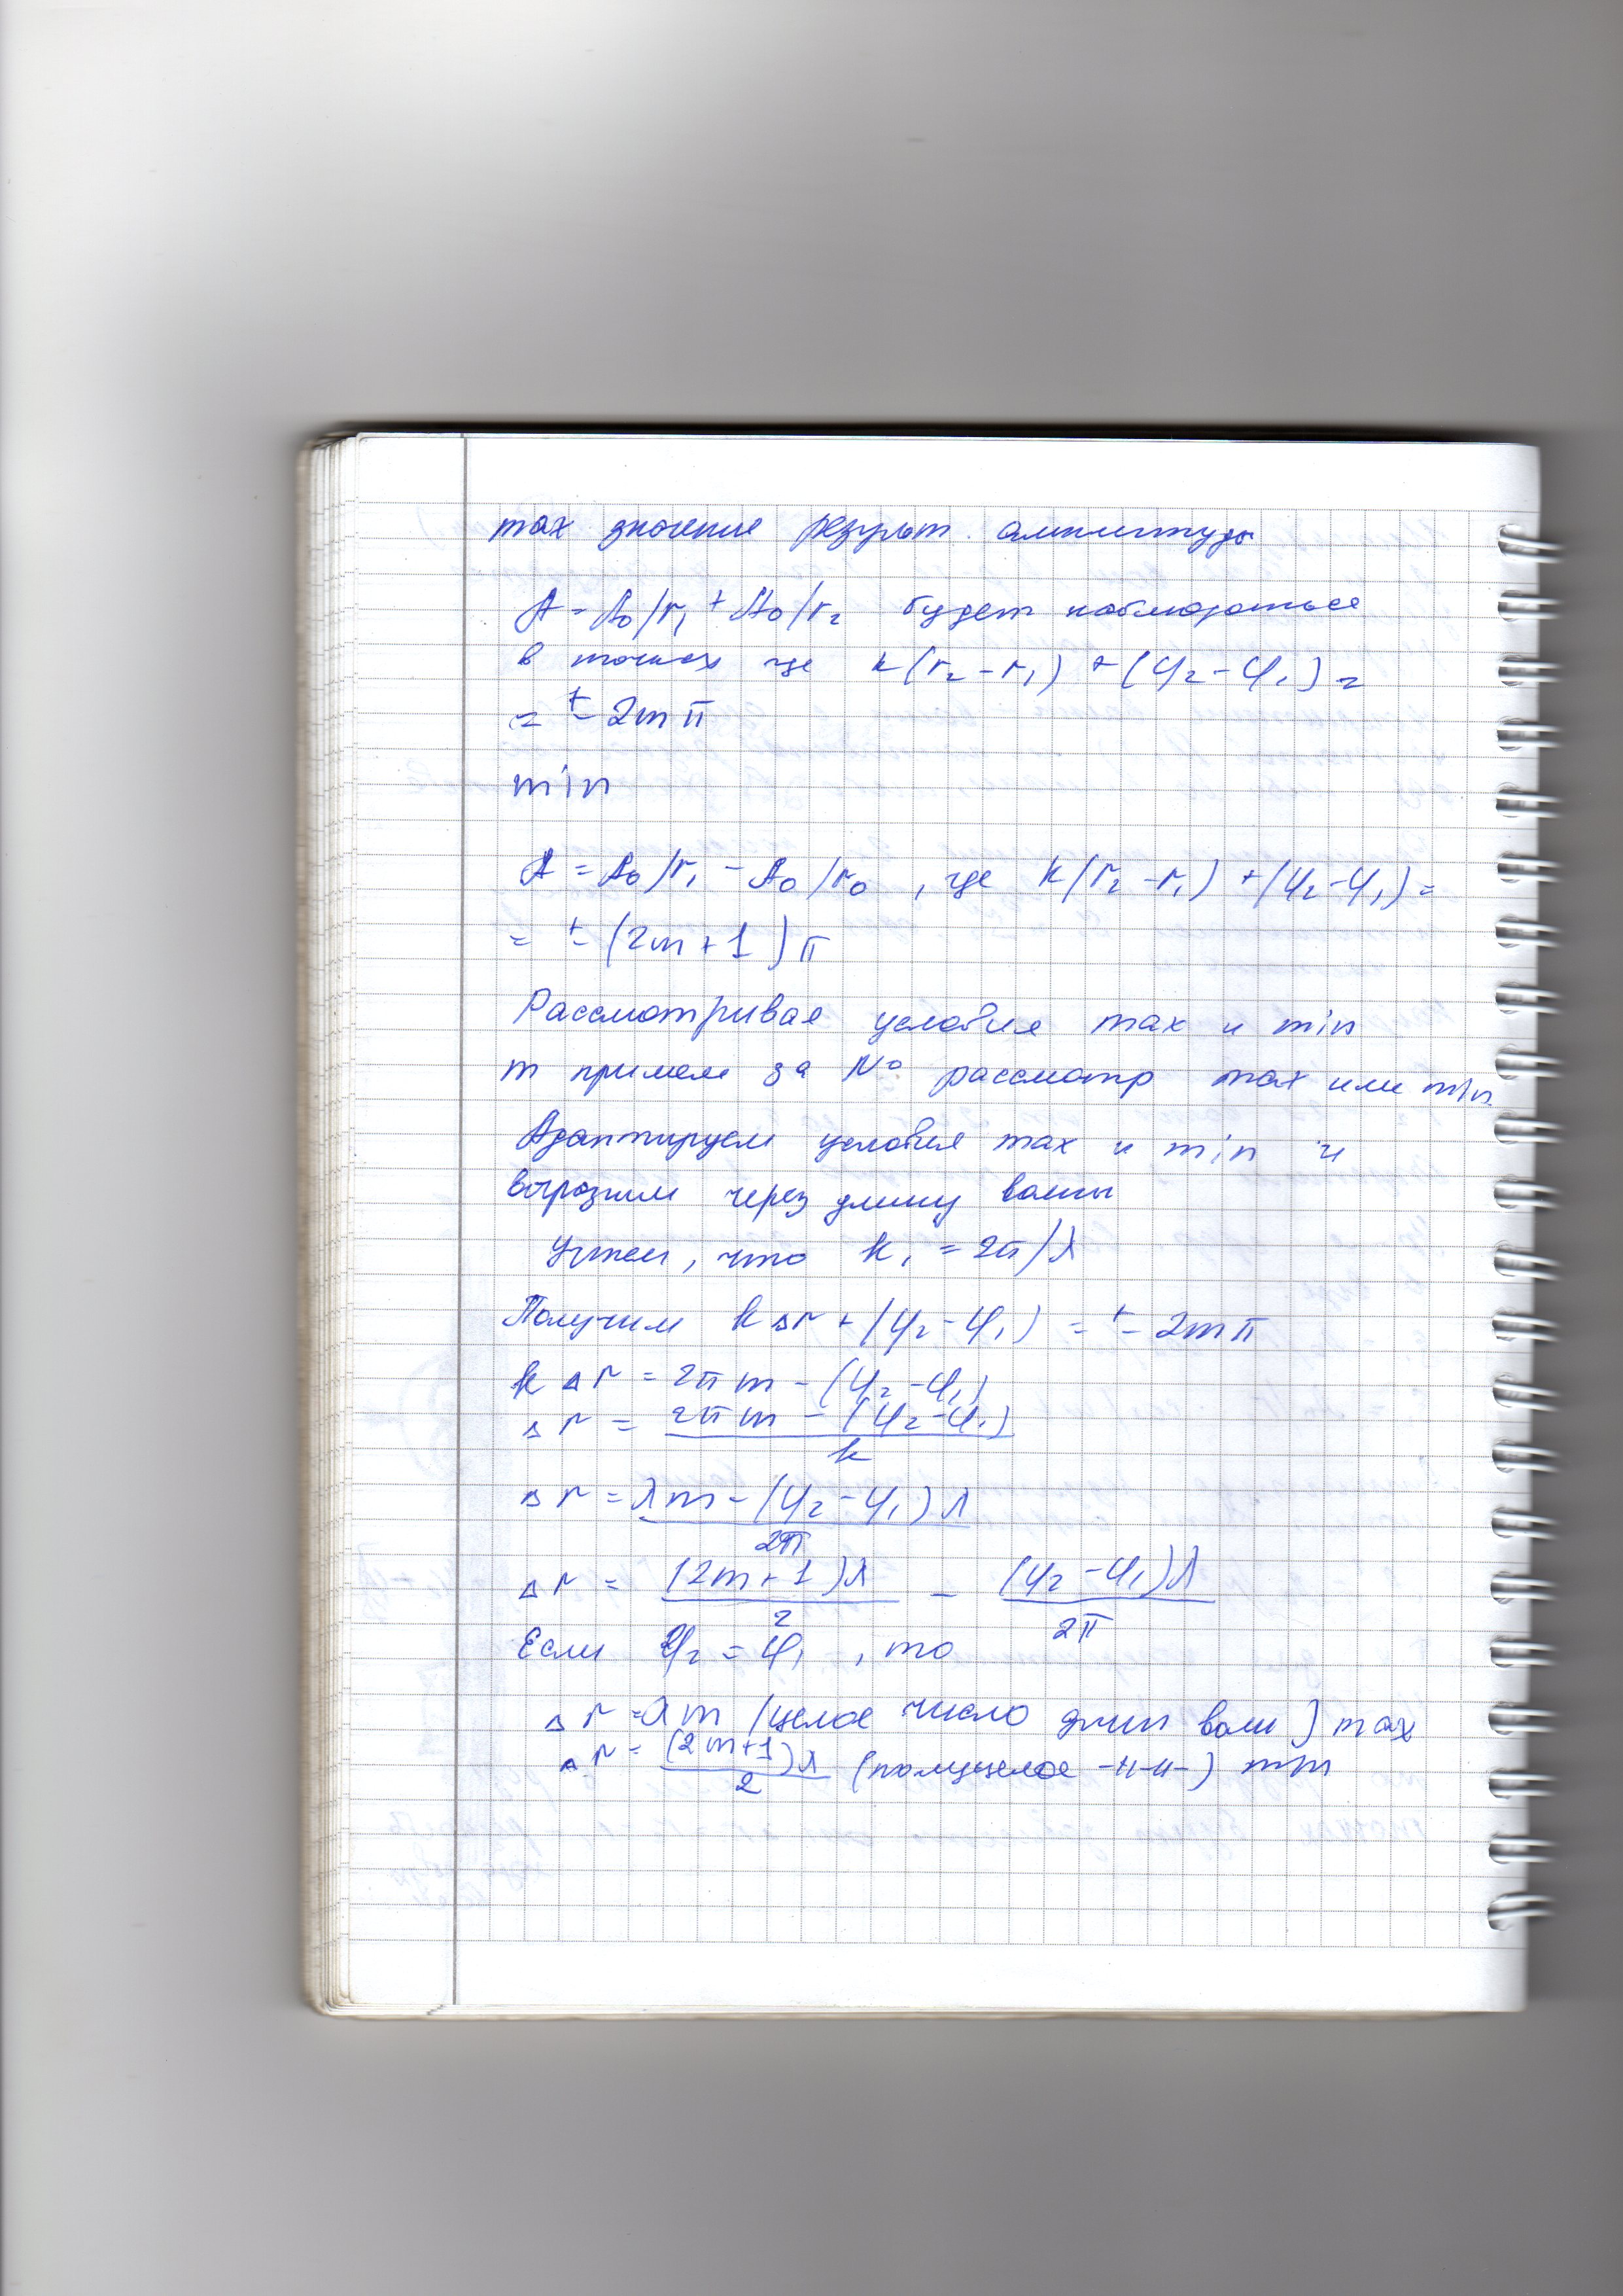 max значение результ. амплитуды
A = A₀/r₁ + A₀/r₂ будет наблюдаться
в точках где k(r₂ - r₁) + (φ₂ - φ₁) =
= ± 2mπ
min
A = A₀/r₁ - A₀/r₀ , где k(r₂ - r₁) + (φ₂ - φ₁) =
= ± (2m + 1)π
Рассматривая условия max и min
m примем за № рассмотр max или min
Адаптируем условия max и min и
выразим через длину волны
Учтем, что k, = 2π/λ
Получим kΔr + (φ₂ - φ₁) = ± 2mπ
kΔr = 2πm - (φ₂ - φ₁)
Δr = (2πm - (φ₂ - φ₁))/k
Δr = (λm - (φ₂ - φ₁)λ)/2π
Δr = (2m + 1)λ/2 - (φ₂ - φ₁)λ/2π
Если φ₂ = φ₁ , то
Δr = λm (целое число длин волн) max
Δr = (2m+1)λ/2 (полуцелое -//-//-) min